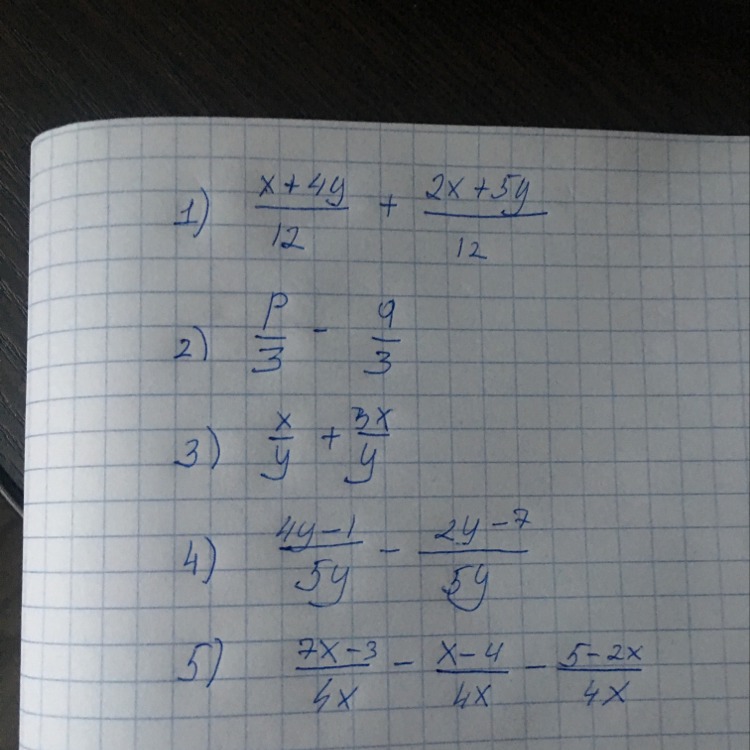 1) \frac{x+4y}{12} + \frac{2x+5y}{12}
2) \frac{p}{3} - \frac{q}{3}
3) \frac{x}{y} + \frac{3x}{y}
4) \frac{4y-1}{5y} - \frac{2y-7}{5y}
5) \frac{7x-3}{4x} - \frac{x-4}{4x} - \frac{5-2x}{4x}